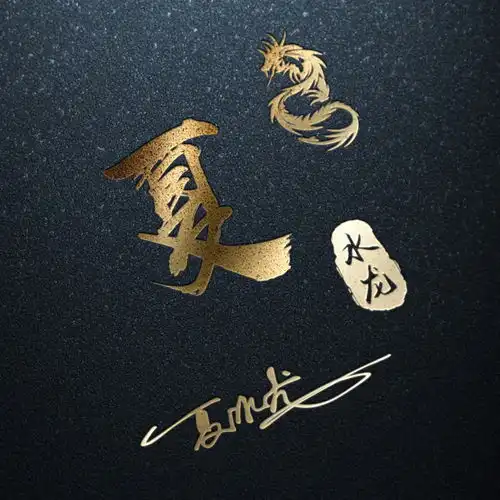 夏
水龙
夏水龙